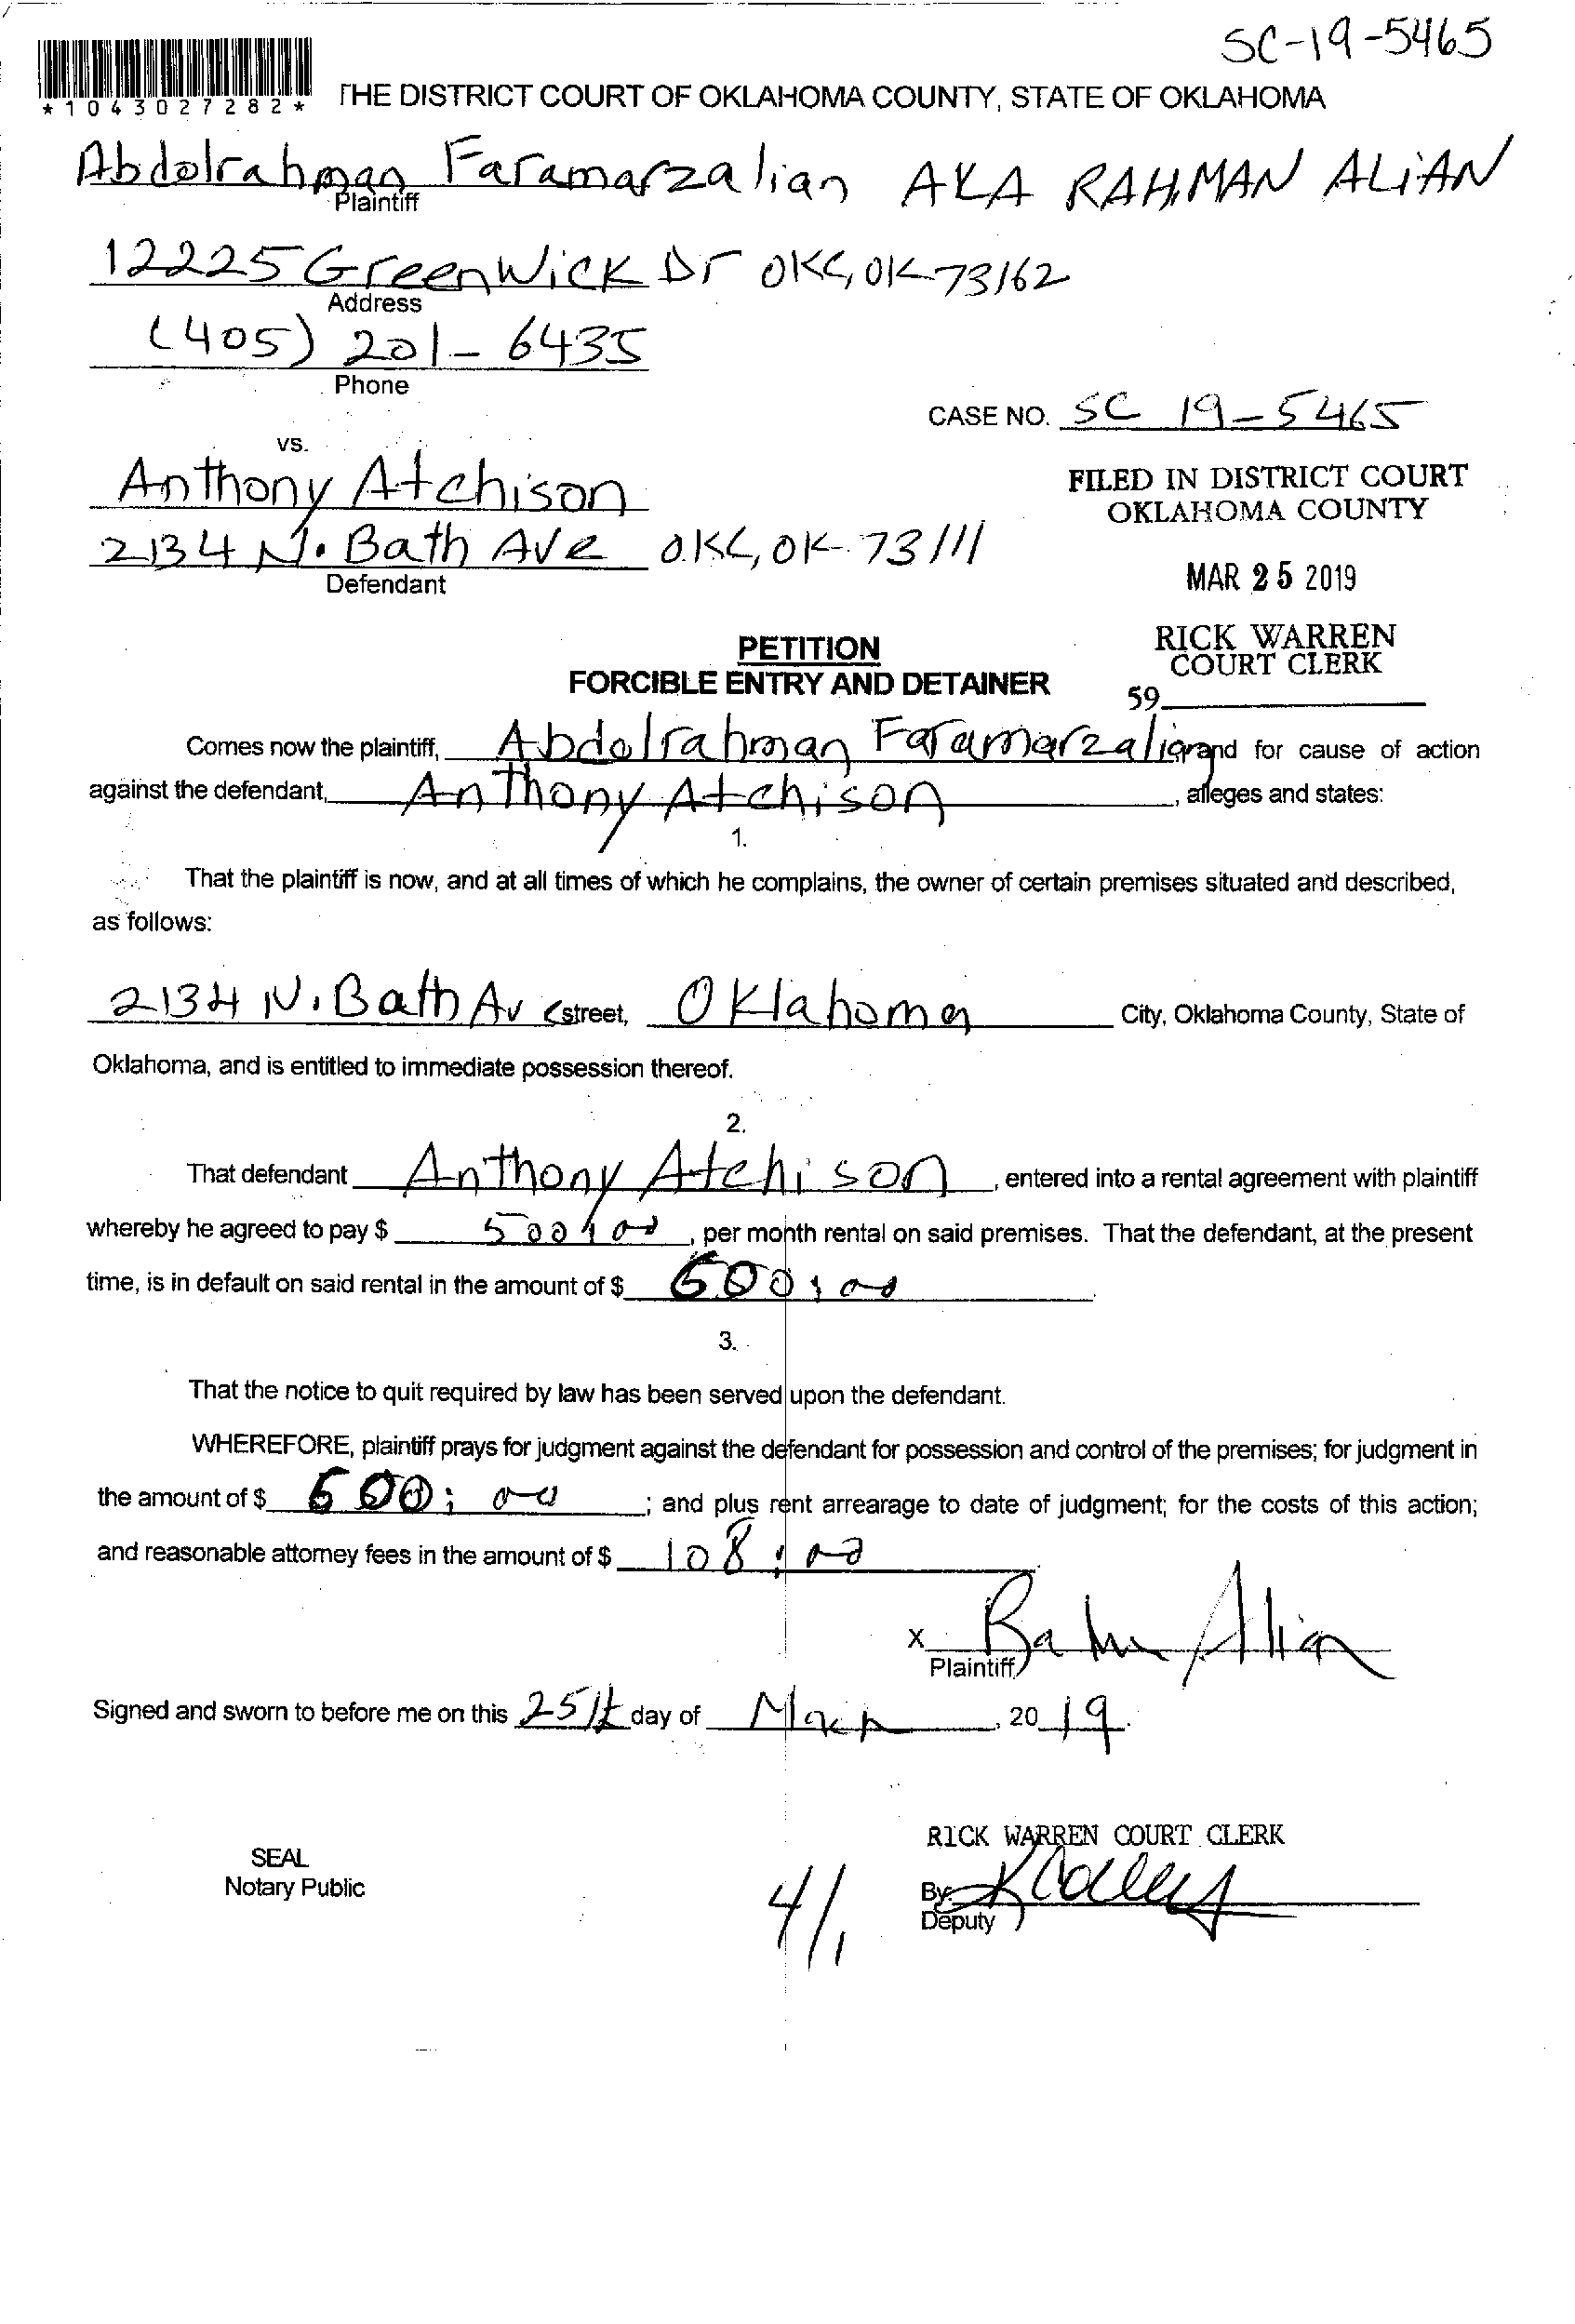 SC-19-5465
*1043027282*
THE DISTRICT COURT OF OKLAHOMA COUNTY, STATE OF OKLAHOMA
Abdolrahman Faramarzalian AKA RAHMAN ALIAN
Plaintiff
12225 GreenWick Dr OKC, OK 73162
Address
(405) 201-6435
Phone
CASE NO. SC 19-5465
vs.
Anthony Atchison
FILED IN DISTRICT COURT
OKLAHOMA COUNTY
2134 N. Bath Ave OKC, OK 73111
Defendant
MAR 25 2019
PETITION
RICK WARREN
COURT CLERK
FORCIBLE ENTRY AND DETAINER
59
Comes now the plaintiff, Abdolrahman Faramarzalian and for cause of action
against the defendant, Anthony Atchison, alleges and states:
1.
That the plaintiff is now, and at all times of which he complains, the owner of certain premises situated and described,
as follows:
2134 N. Bath Ave street, Oklahoma City, Oklahoma County, State of
Oklahoma, and is entitled to immediate possession thereof.
2.
That defendant Anthony Atchison, entered into a rental agreement with plaintiff
whereby he agreed to pay $ 500.00, per month rental on said premises. That the defendant, at the present
time, is in default on said rental in the amount of $
3.
That the notice to quit required by law has been served upon the defendant.
WHEREFORE, plaintiff prays for judgment against the defendant for possession and control of the premises; for judgment in
the amount of $ ; and plus rent arrearage to date of judgment; for the costs of this action;
and reasonable attorney fees in the amount of $ 108.00
x
Plaintiff
Signed and sworn to before me on this 25th day of March, 2019.
RICK WARREN COURT CLERK
SEAL
Notary Public
4/1
By:
Deputy